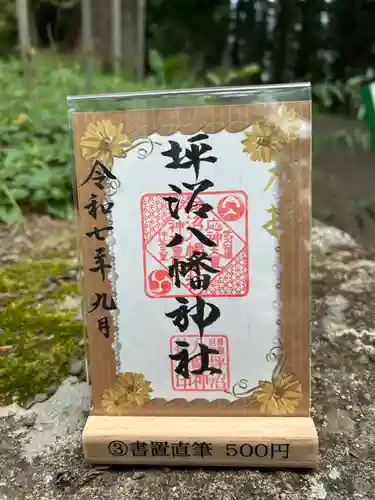 坪沼八幡神社
令和七年九月
③書置直筆 500円